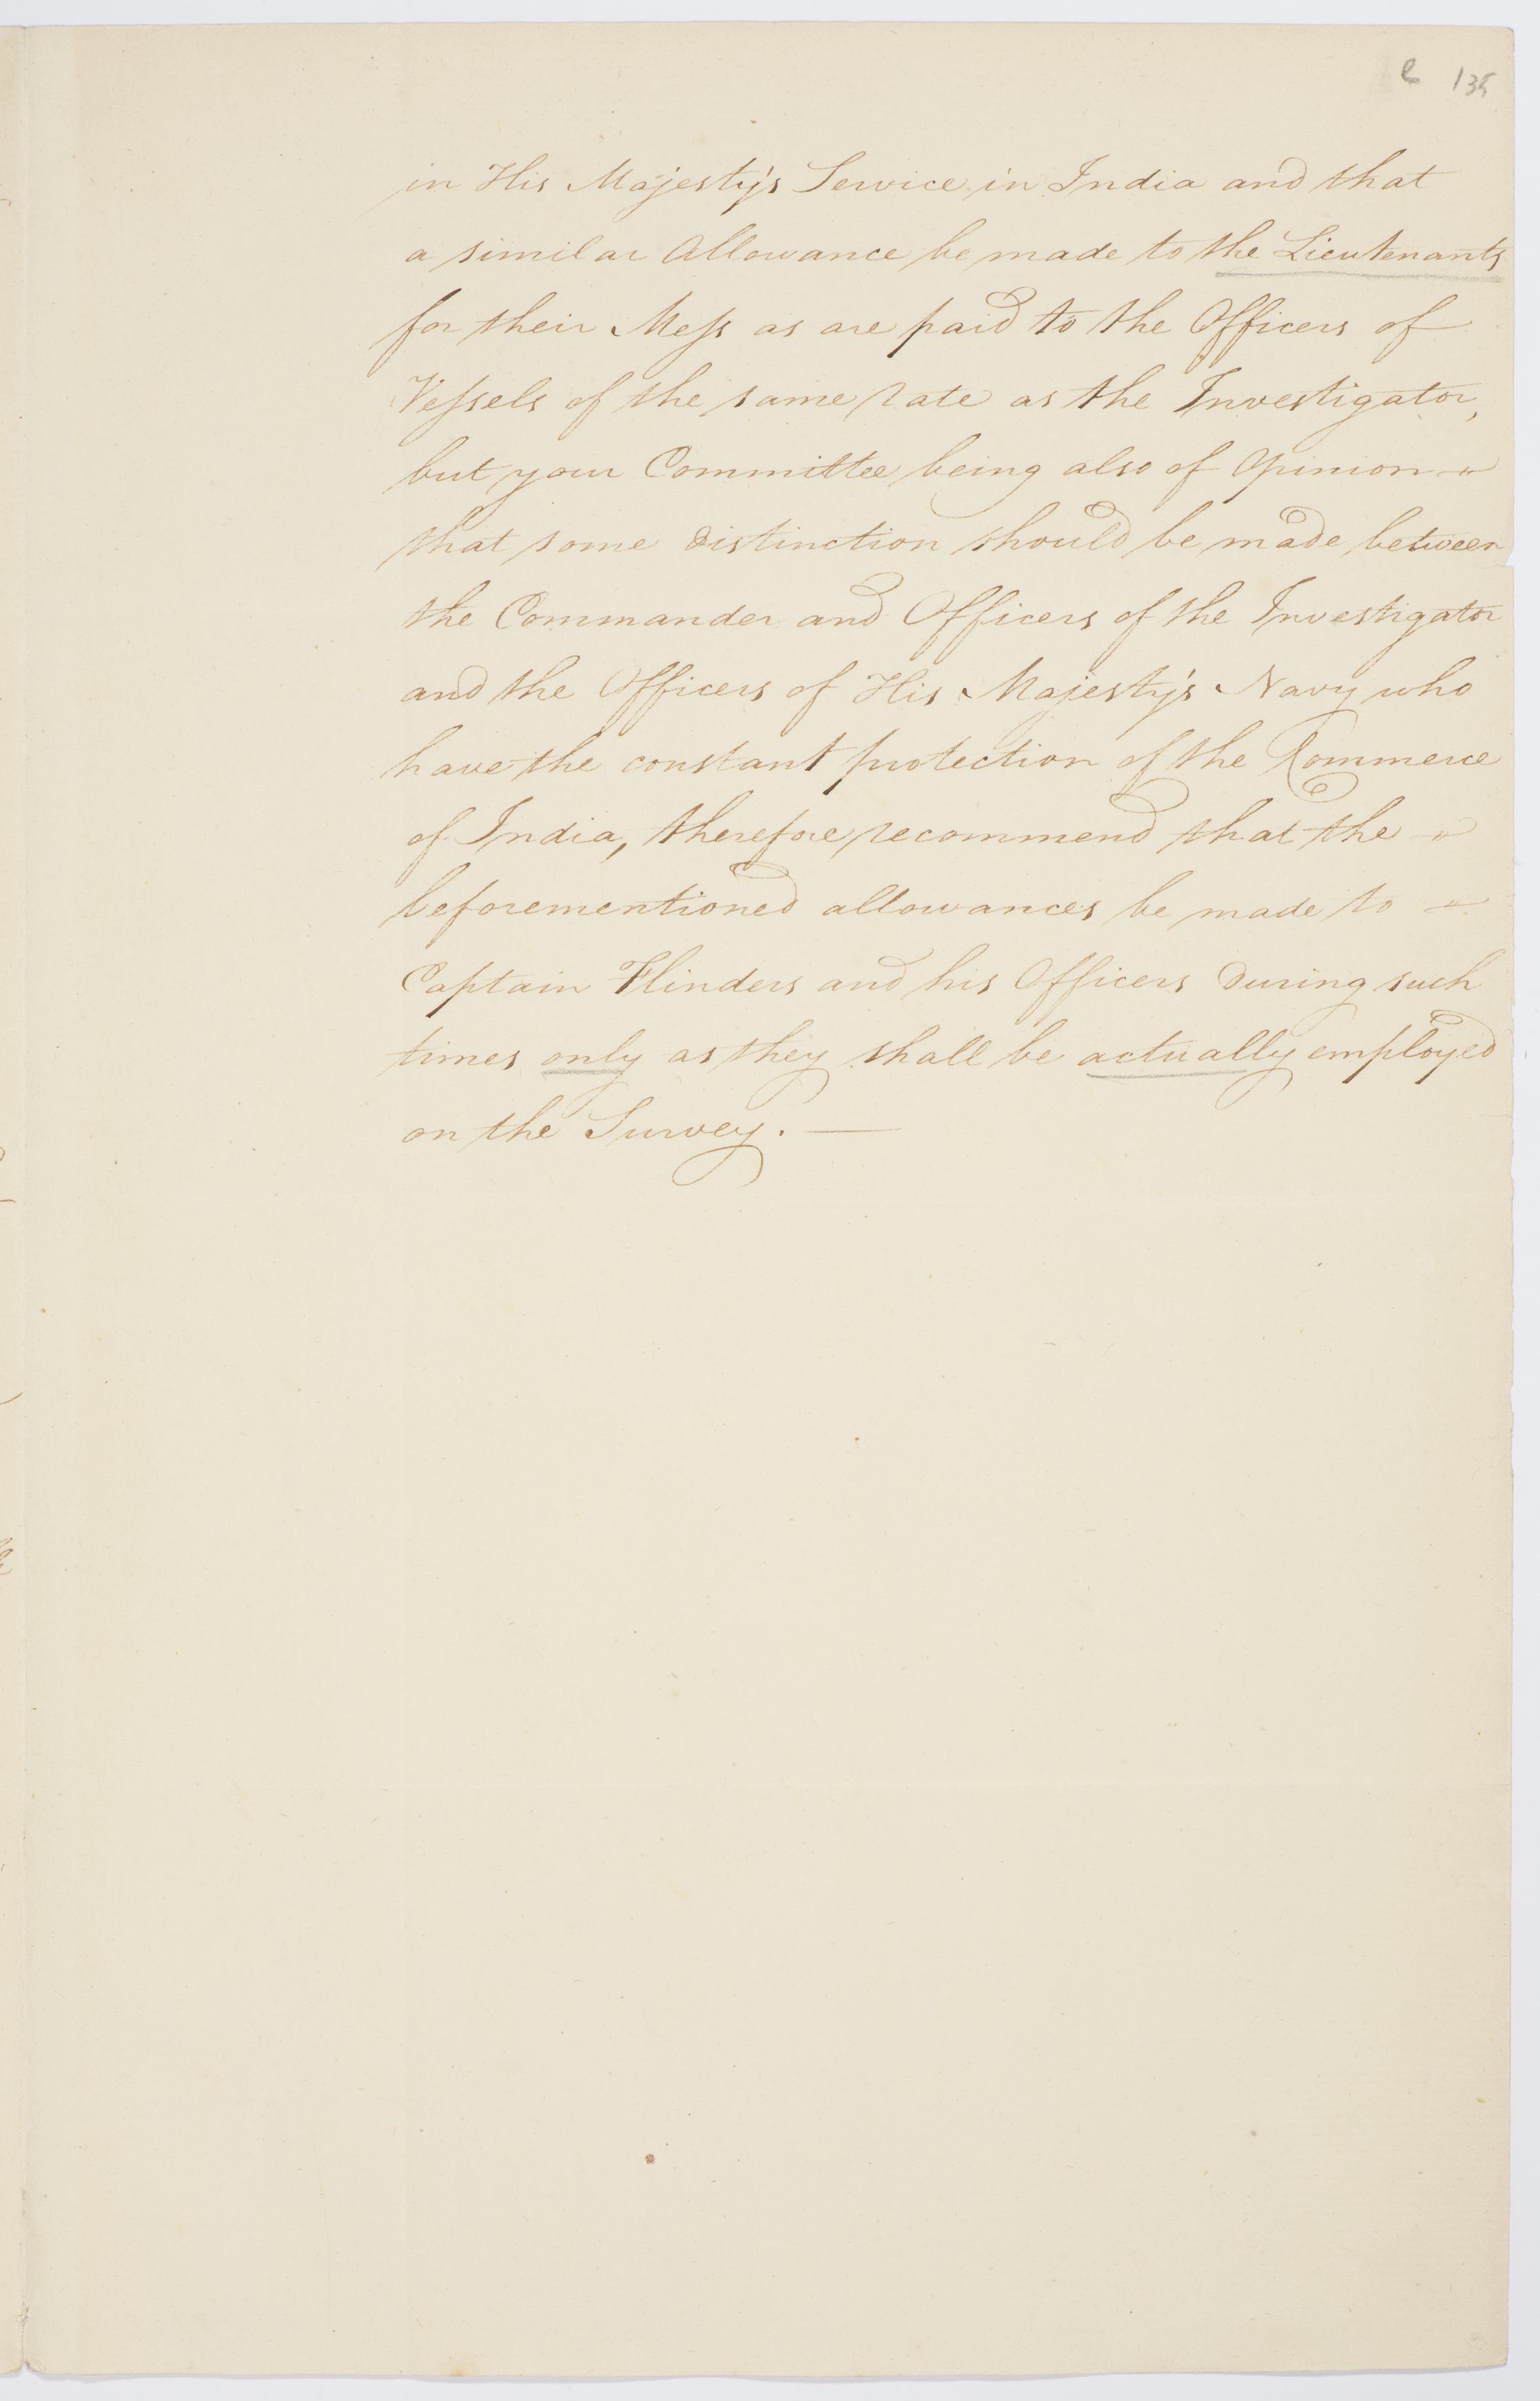 e 135
in His Majesty's Service in India and that
a similar Allowance be made to the Lieutenants
for their Meſs as are paid to the Officers of
Veſsels of the same rate as the Investigator,
but your Committee being also of Opinion
that some distinction should be made between
the Commander and Officers of the Investigator
and the Officers of His Majesty's Navy who
have the constant protection of the Commerce
of India, therefore recommend that the
beforementioned allowances be made to
Captain Flinders and his Officers during such
times only as they shall be actually employed
on the Survey. —